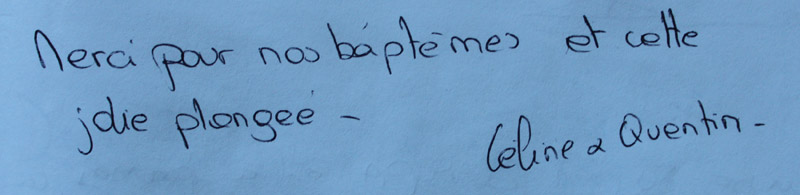 Merci pour nos báptêmes et cette
jolie plongeé -
Céline & Quentin -